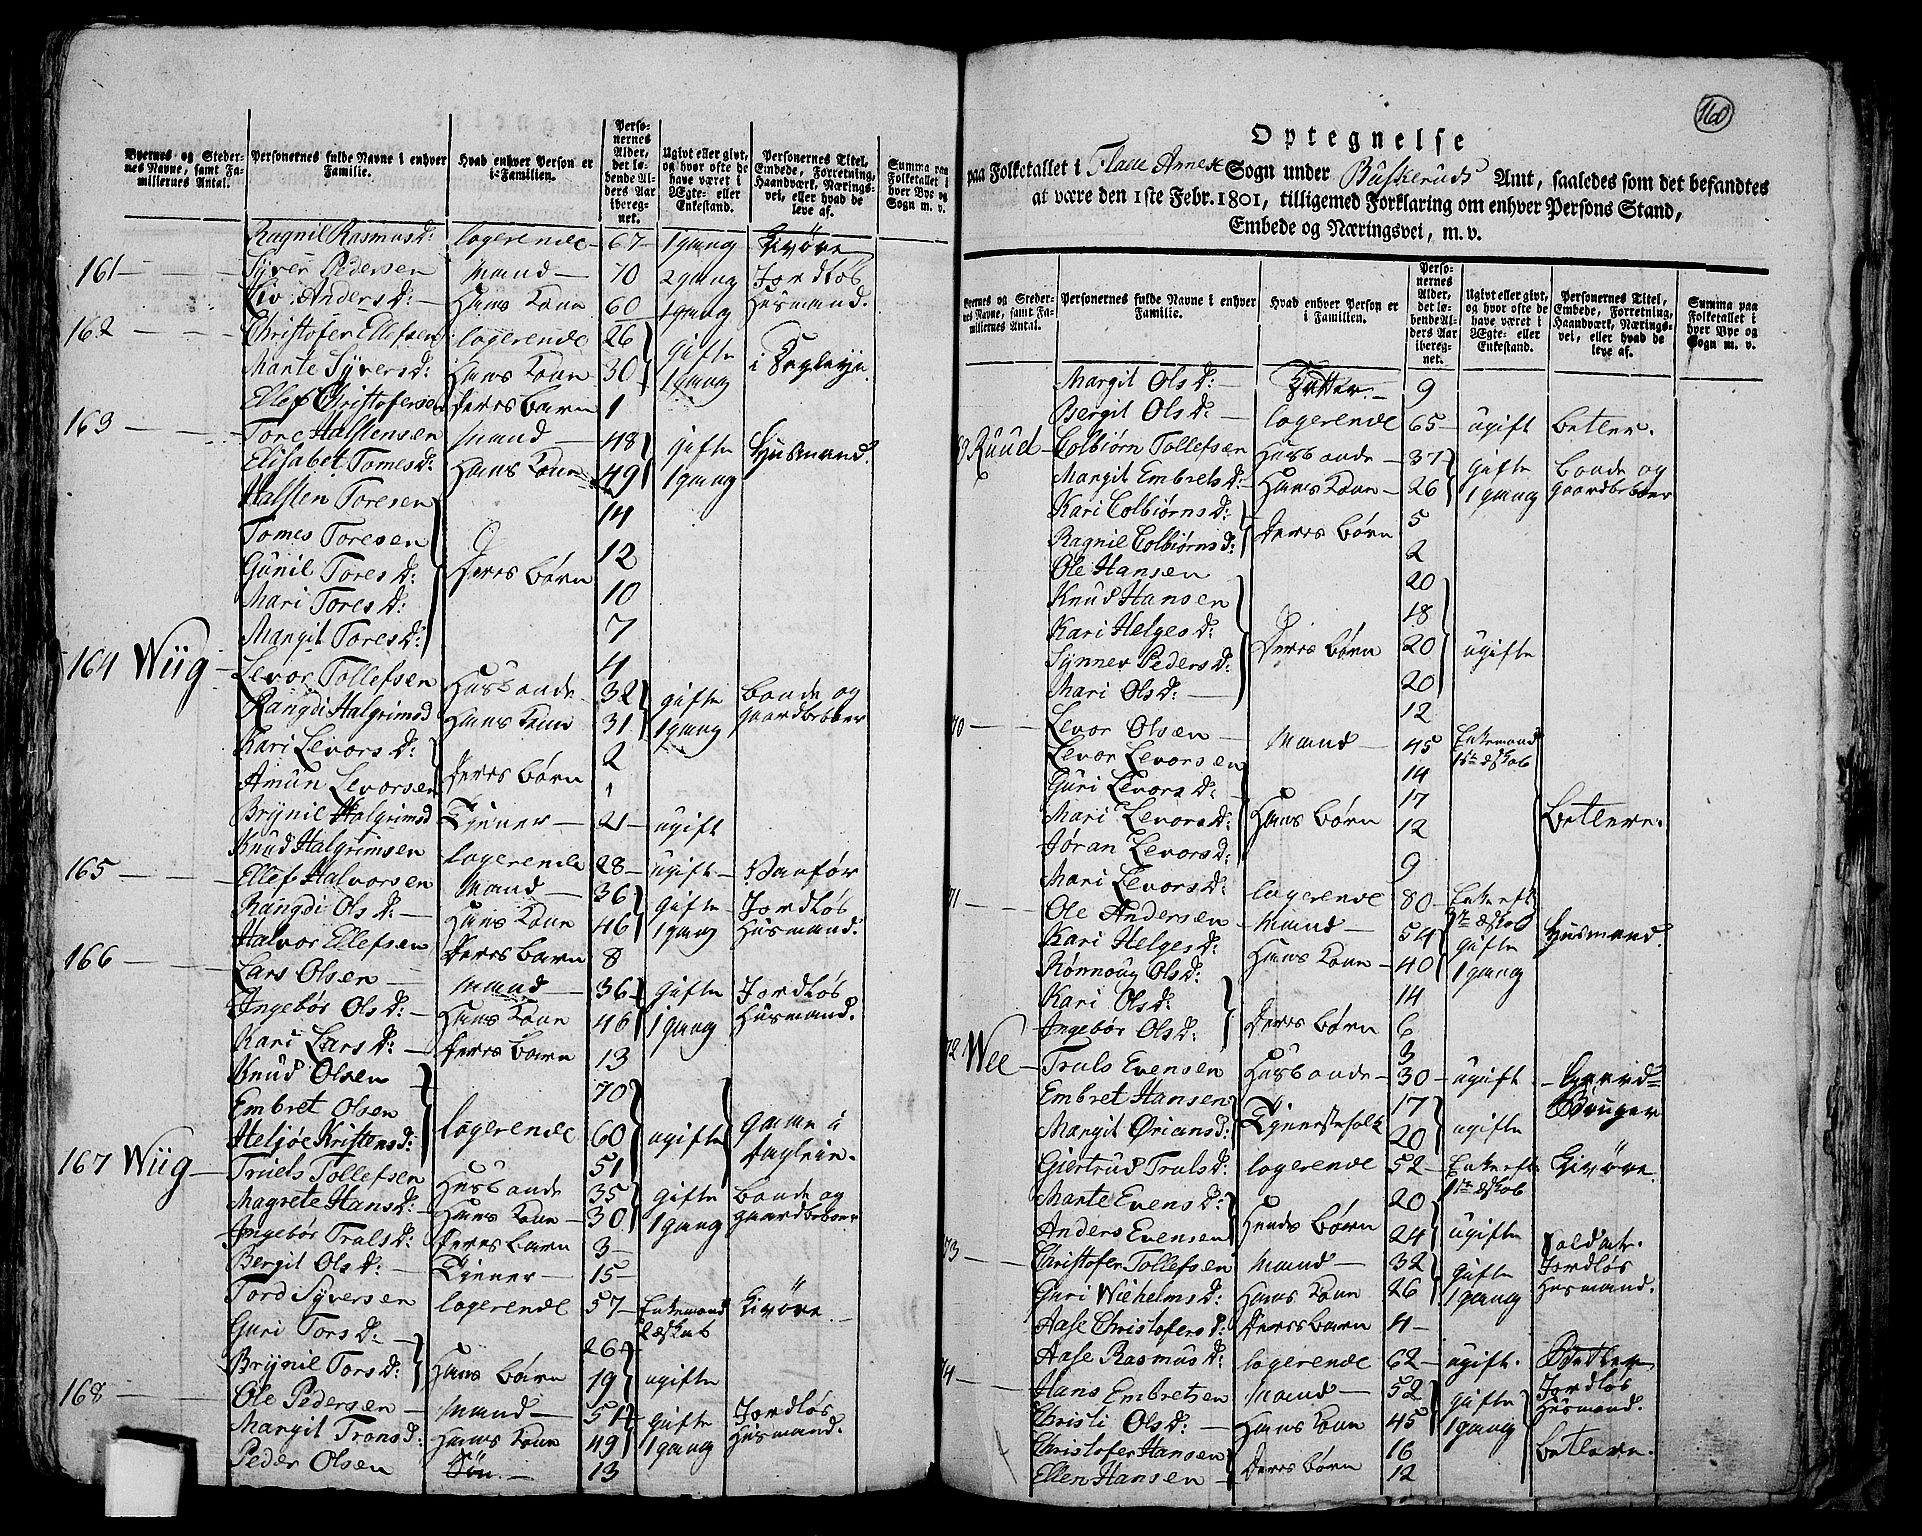 Byernes og Steder-
nes Navne, samt Fa-
miliernes Antal.
Personernes fulde Navne i enhver
Familie.
Hvad enhver Person er
i Familien.
Perso-
nernes
Alder,
det lø-
bende Al-
ders Aar
iberegn-
net.
Ugivt eller givt,
og hvor ofte de
have været i
Ægte- eller
Enkestand.
Personernes Titel,
Embede, Forretning,
Haandværk, Nærings-
vei, eller hvad de
leve af.
Summa paa
Folketallet i
hver Bye og
Sogn m. v.
Ragnil Rasmusd: logerende 67 1 gang
161 Syver Pedersen Mand 70 2 gang Jordløs
Liv Andersd: Hans Kone 60 1 gang Huusmand.
162 Christofer Ellefsen logerende 26 gifte
Marte Syversd: Hans Kone 30 1 gang i Dagleye
Ellef Christofersen deres barn 1
163 Tore Halstensen Mand 48 gifte Huusmand.
Elisabet Tomesd: Hans Kone 49 1 gang
Halsten Toresen 14
Tomes Toresen 12
Gunil Toresd: deres børn 10
Mari Toresd: 7
Margit Toresd: 4
164 Wiig Levor Tollefsen Husbonde 32 gifte bonde og
Rangdi Halgrimsd Hans Kone 31 1 gang gaardbeboer
Kari Levorsd: 2
Amun Levorsen deres børn 1
Brynil Halgrimsd Tjener 21 ugift
Knud Halgrimsen logerende 28 ugift Vanfør
165 Ellef Halvorsen Mand 36 gifte Jordløs
Rangdi Olsd: Hans Kone 46 1 gang Huusmand.
Halvor Ellefsen deres barn 8
166 Lars Olsen Mand 36 gifte Jordløs
Ingebør Olsd: Hans Kone 46 1 gang Huusmand.
Kari Larsd: deres barn 13
Knud Olsen 70
Embret Olsen logerende 60 ugifte
Heljøe Kristensd: 51
167 Wiig Truels Tollefsen Husbonde 35 gifte bonde og
Magrete Hansd: Hans Kone 30 1 gang gaardbeboer
Ingebør Trulsd: deres barn 3
Bergit Olsd: Tjener 15
Tord Syversen logerende 57 Enkemand
Guri Torsd: 26
Brynil Torsd: Hans børn 19 ugifte
168 Ole Pedersen Mand 51 gifte Jordløs
Margit Tronsd: Hans Kone 49 1 gang Huusmand.
Peder Olsen Søn 13
160
Optegnelse
paa Folketallet i Flaae Annex Sogn under Buskeruds Amt, saaledes som det befandtes
at være den 1ste Febr. 1801, tilligemed Forklaring om enhver Persons Stand,
Embede og Næringsvei, m. v.
Byernes og Steder-
nes Navne, samt Fa-
miliernes Antal.
Personernes fulde Navne i enhver
Familie.
Hvad enhver Person er
i Familien.
Perso-
nernes
Alder,
det lø-
bende Al-
ders Aar
iberegn-
net.
Ugivt eller givt,
og hvor ofte de
have været i
Ægte- eller
Enkestand.
Personernes Titel,
Embede, Forretning,
Haandværk, Nærings-
vei, eller hvad de
leve af.
Summa paa
Folketallet i
hver Bye og
Sogn m. v.
Margit Olsd: 9
Bergit Olsd: logerende 65 ugift betler.
69 Ruud Colbiørn Tollefsen Husbonde 37 gifte bonde og
Margit Embretsd: Hans Kone 26 1 gang gaardbeboer
Kari Colbiørnsd: deres børn 5
Ragnil Colbiørnsd: 2
Ole Hansen 20
Knud Hansen 18
Kari Helgesd: deres børn 20 ugifte
Synnev Pedersd: 20
Mari Olsd: 12
70 Levor Olsen Mand 45 Enkemand
Levor Levorsen 14
Guri Levorsd: 17
Mari Levorsd: Hans børn 12 Betlere.
Jøran Levorsd: 9
Mari Levorsd: logerende 80
71 Ole Andersen Mand 54 gifte Huusmand.
Kari Helgesd: Hans Kone 40 1 gang
Rønnoug Olsd: 14
Kari Olsd: 6
Ingebør Olsd: deres børn 3
72 Wee Truls Evensen Husbonde 30 ugift Gaard=
Embret Hansen 17 Bruger
Margit Øriansd: Tjenestefolk 20 ugifte
Giertrud Trulsd: logerende 52
Marte Evensd: 20
Anders Evensen Hendes børn 24 ugifte Soldat.
73 Christofer Tollefsen Mand 32 gifte Jordløs
Guri Wielhelmsd: Hans Kone 26 1 gang Huusmand.
Aase Christofersd: deres barn 4
Aase Rasmusd: logerende 62 ugift. Betler
74 Hans Embretsen Mand 52 gifte Jordløs
Christi Olsd: Hans Kone 45 1 gang Huusmand.
Christofer Hansen 16 betlere.
Ellen Hansen deres børn 12